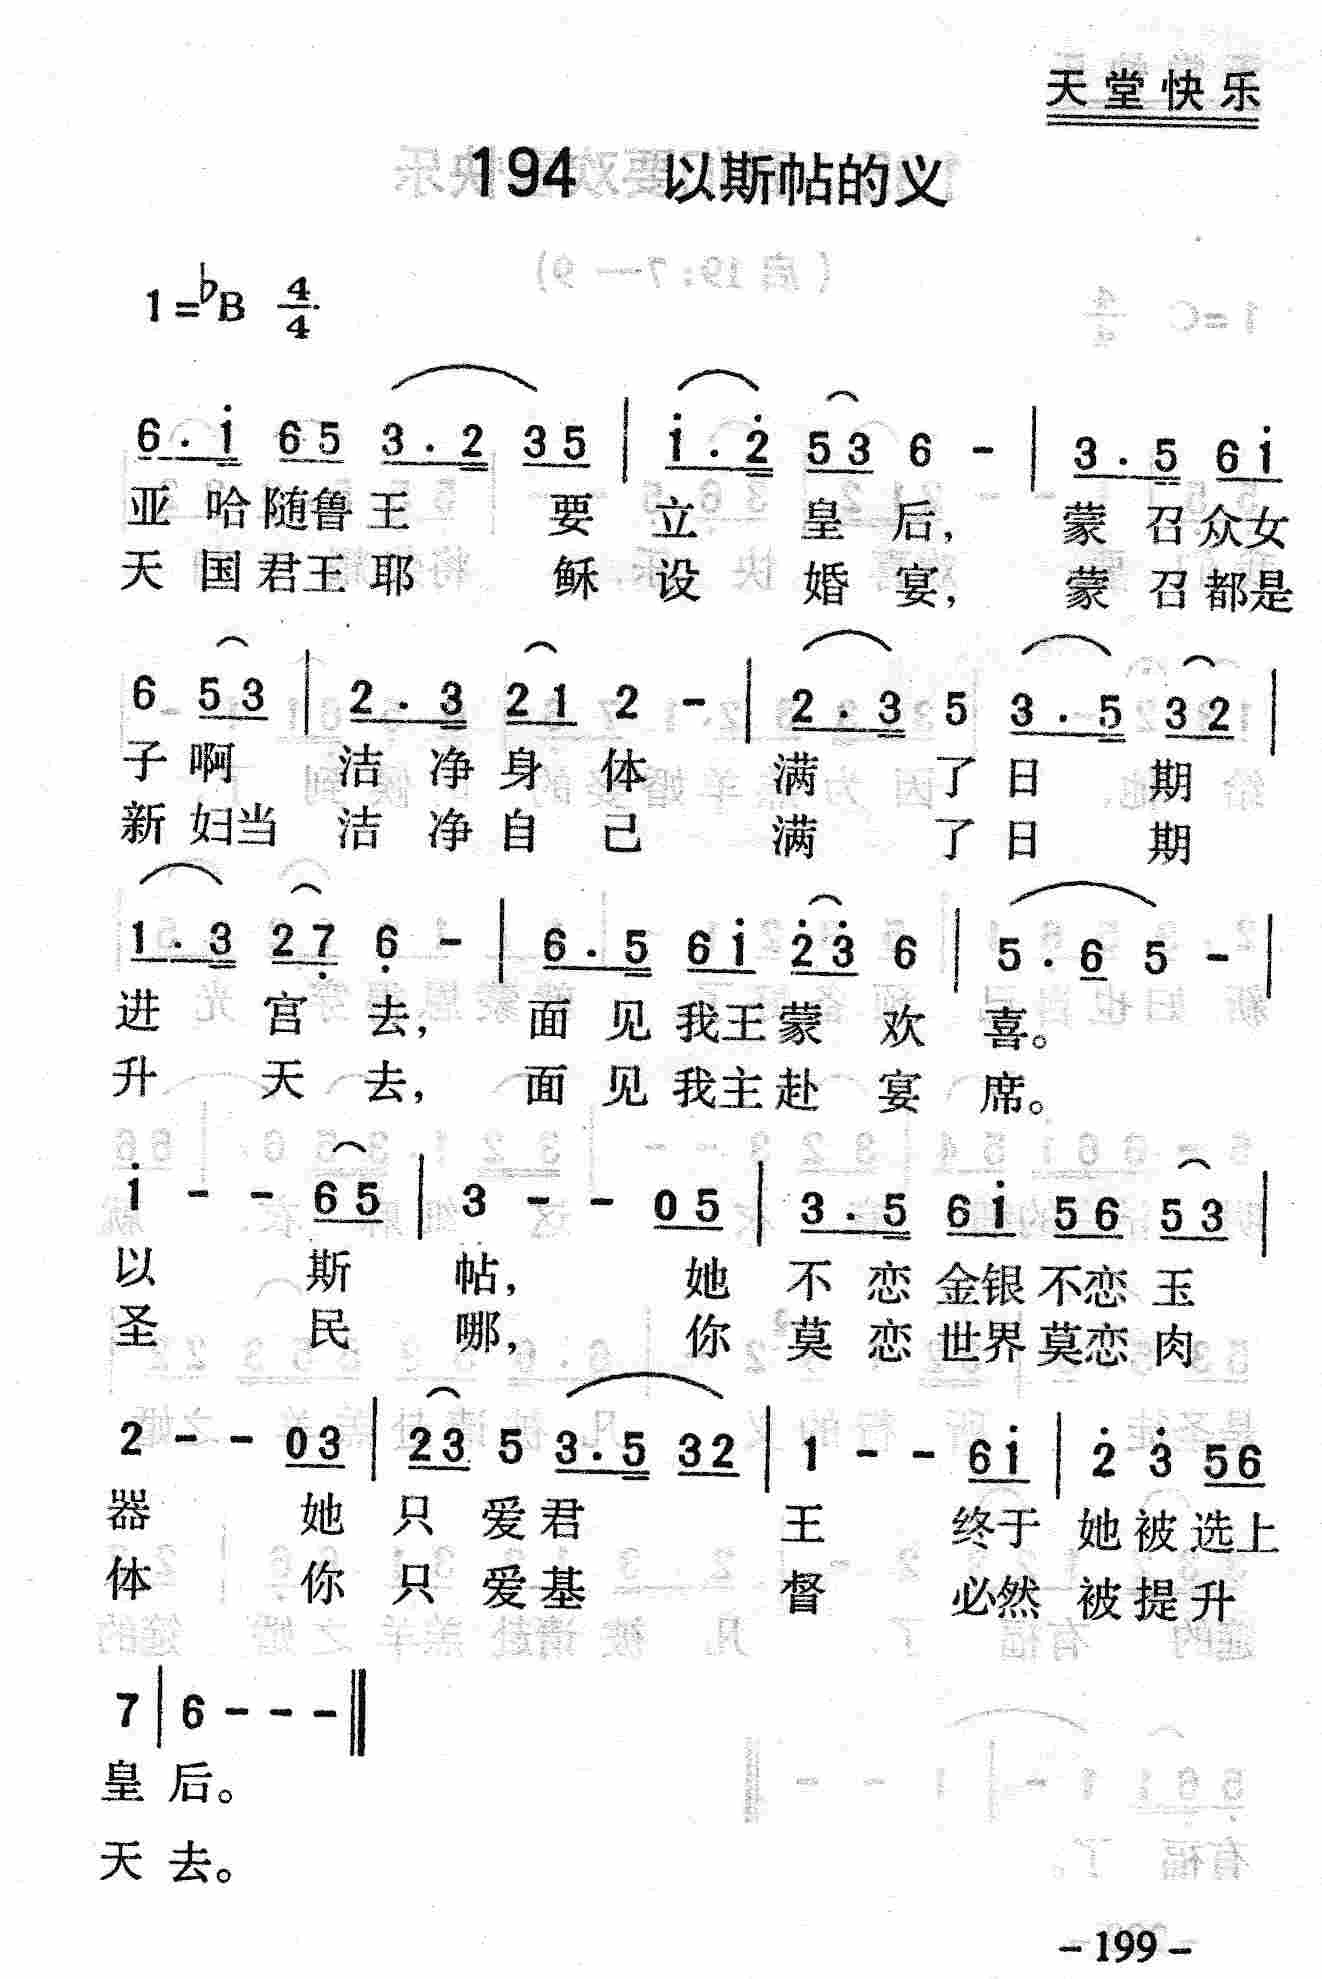 天堂快乐
194 以斯帖的义
1=♭B 4/4
6·i 65 3·2 35 | i·2 53 6 - | 3·5 6i
亚哈随鲁王要立皇后,蒙召众女
天国君王耶稣设婚宴,蒙召都是
6 53 | 2·3 21 2 - | 2·3 5 3·5 32 |
子啊洁净身体满了日期
新妇当洁净自己满了日期
1·3 27 6 - | 6·5 6i 23 6 | 5·6 5 - |
进宫去,面见我王蒙欢喜。
升天去,面见我主赴宴席。
i - - 65 | 3 - - 05 | 3·5 6i 56 53 |
以斯帖,她不恋金银不恋玉
圣民哪,你莫恋世界莫恋肉
2 - - 03 | 23 5 3·5 32 | 1 - - 6i | 2 3 56
器她只爱君王终于她被选上
体你只爱基督必然被提升
7 | 6 - - - ‖
皇后。
天去。
- 199 -